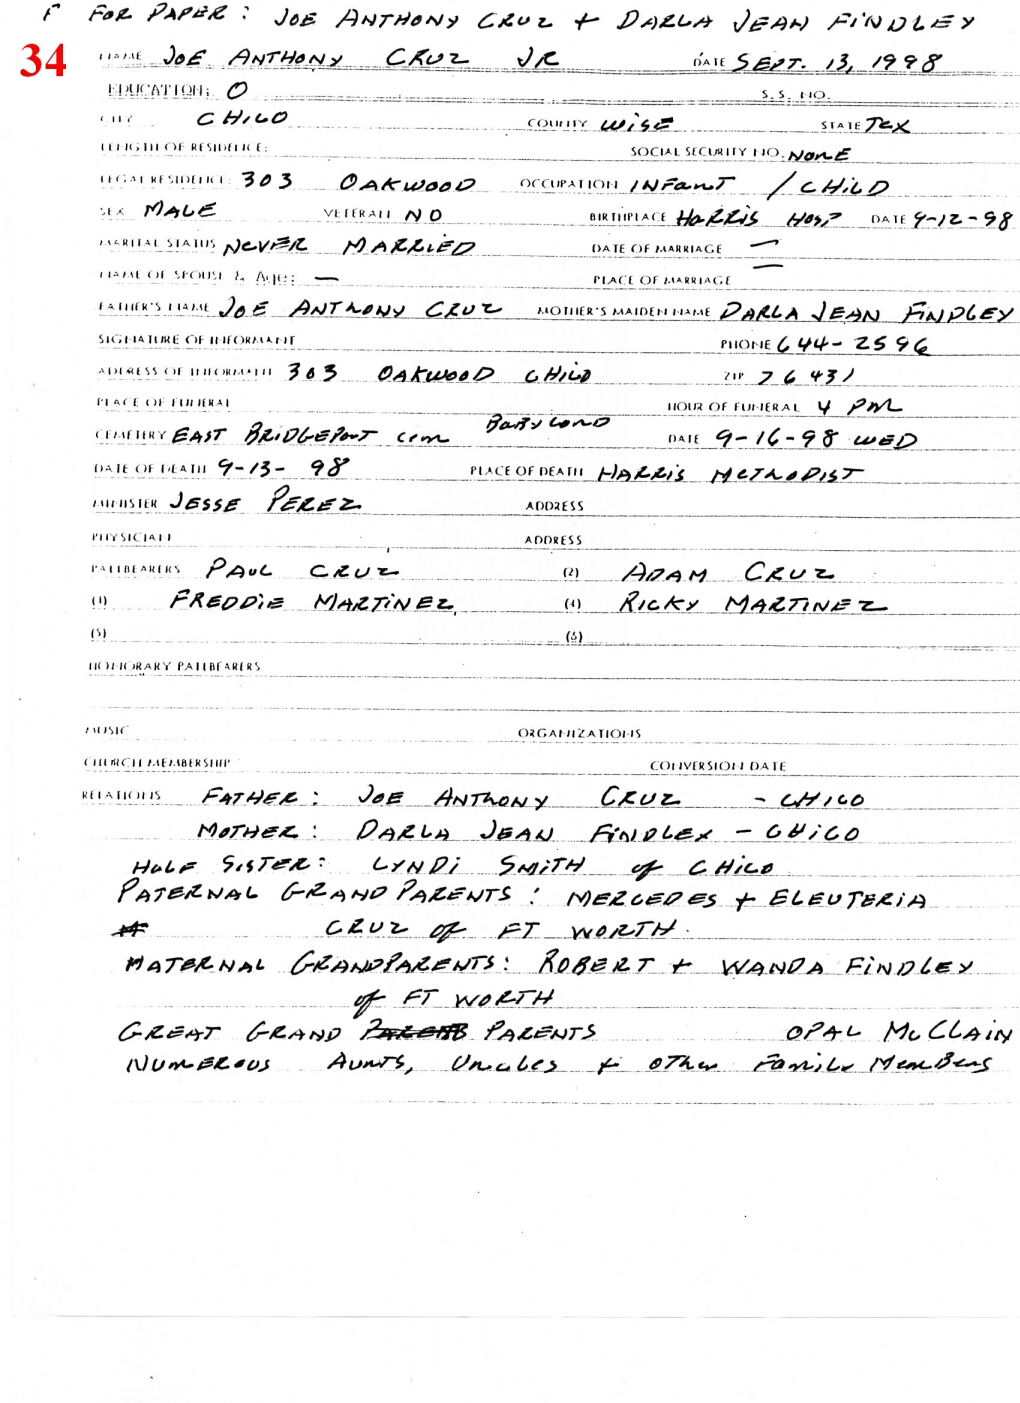 F FOR PAPER: JOE ANTHONY CRUZ + DARLA JEAN FINDLEY
34
NAME JOE ANTHONY CRUZ JR DATE SEPT. 13, 1998
EDUCATION: 0 S.S. NO.
CITY CHICO COUNTY WISE STATE TEX
LENGTH OF RESIDENCE: SOCIAL SECURITY NO. NONE
LEGAL RESIDENCE: 303 OAKWOOD OCCUPATION INFANT / CHILD
SEX MALE VETERAN NO BIRTHPLACE HARRIS HOSP DATE 9-12-98
MARITAL STATUS NEVER MARRIED DATE OF MARRIAGE —
NAME OF SPOUSE & Age: — PLACE OF MARRIAGE —
FATHER'S NAME JOE ANTHONY CRUZ MOTHER'S MAIDEN NAME DARLA JEAN FINDLEY
SIGNATURE OF INFORMANT PHONE 644-2596
ADDRESS OF INFORMANT 303 OAKWOOD CHICO ZIP 76431
PLACE OF FUNERAL HOUR OF FUNERAL 4 PM
CEMETERY EAST BRIDGEPORT CEM BABYLAND DATE 9-16-98 WED
DATE OF DEATH 9-13-98 PLACE OF DEATH HARRIS METHODIST
MINISTER JESSE PEREZ ADDRESS
PHYSICIAN ADDRESS
PALLBEARERS PAUL CRUZ (2) ADAM CRUZ
(3) FREDDIE MARTINEZ (4) RICKY MARTINEZ
(5) (6)
HONORARY PALLBEARERS
MUSIC ORGANIZATIONS
CHURCH MEMBERSHIP CONVERSION DATE
RELATIONS FATHER: JOE ANTHONY CRUZ - CHICO
MOTHER: DARLA JEAN FINDLEY - CHICO
HALF SISTER: LYNDI SMITH of CHICO
PATERNAL GRAND PARENTS: MERCEDES + ELEUTERIA
CRUZ of FT WORTH.
MATERNAL GRANDPARENTS: ROBERT + WANDA FINDLEY
of FT WORTH
GREAT GRAND PARENTS OPAL McCLAIN
NUMEROUS AUNTS, UNCLES + OTHER FAMILY MEMBERS